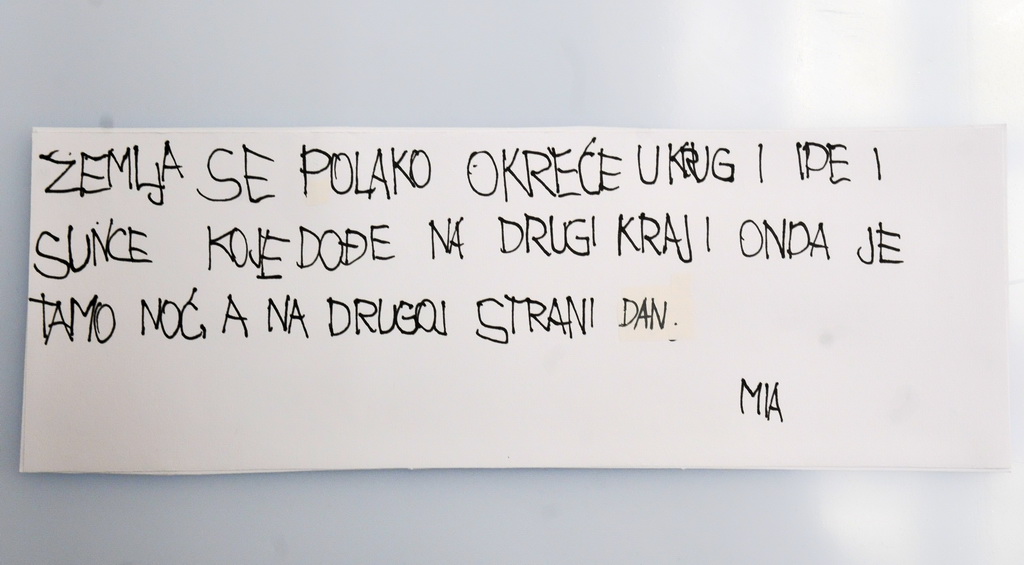 ZEMLJA SE POLAKO OKREĆE UKRUG I IDE I
SUNCE KOJE DOĐE NA DRUGI KRAJ I ONDA JE
TAMO NOĆ, A NA DRUGOJ STRANI DAN.
MIA